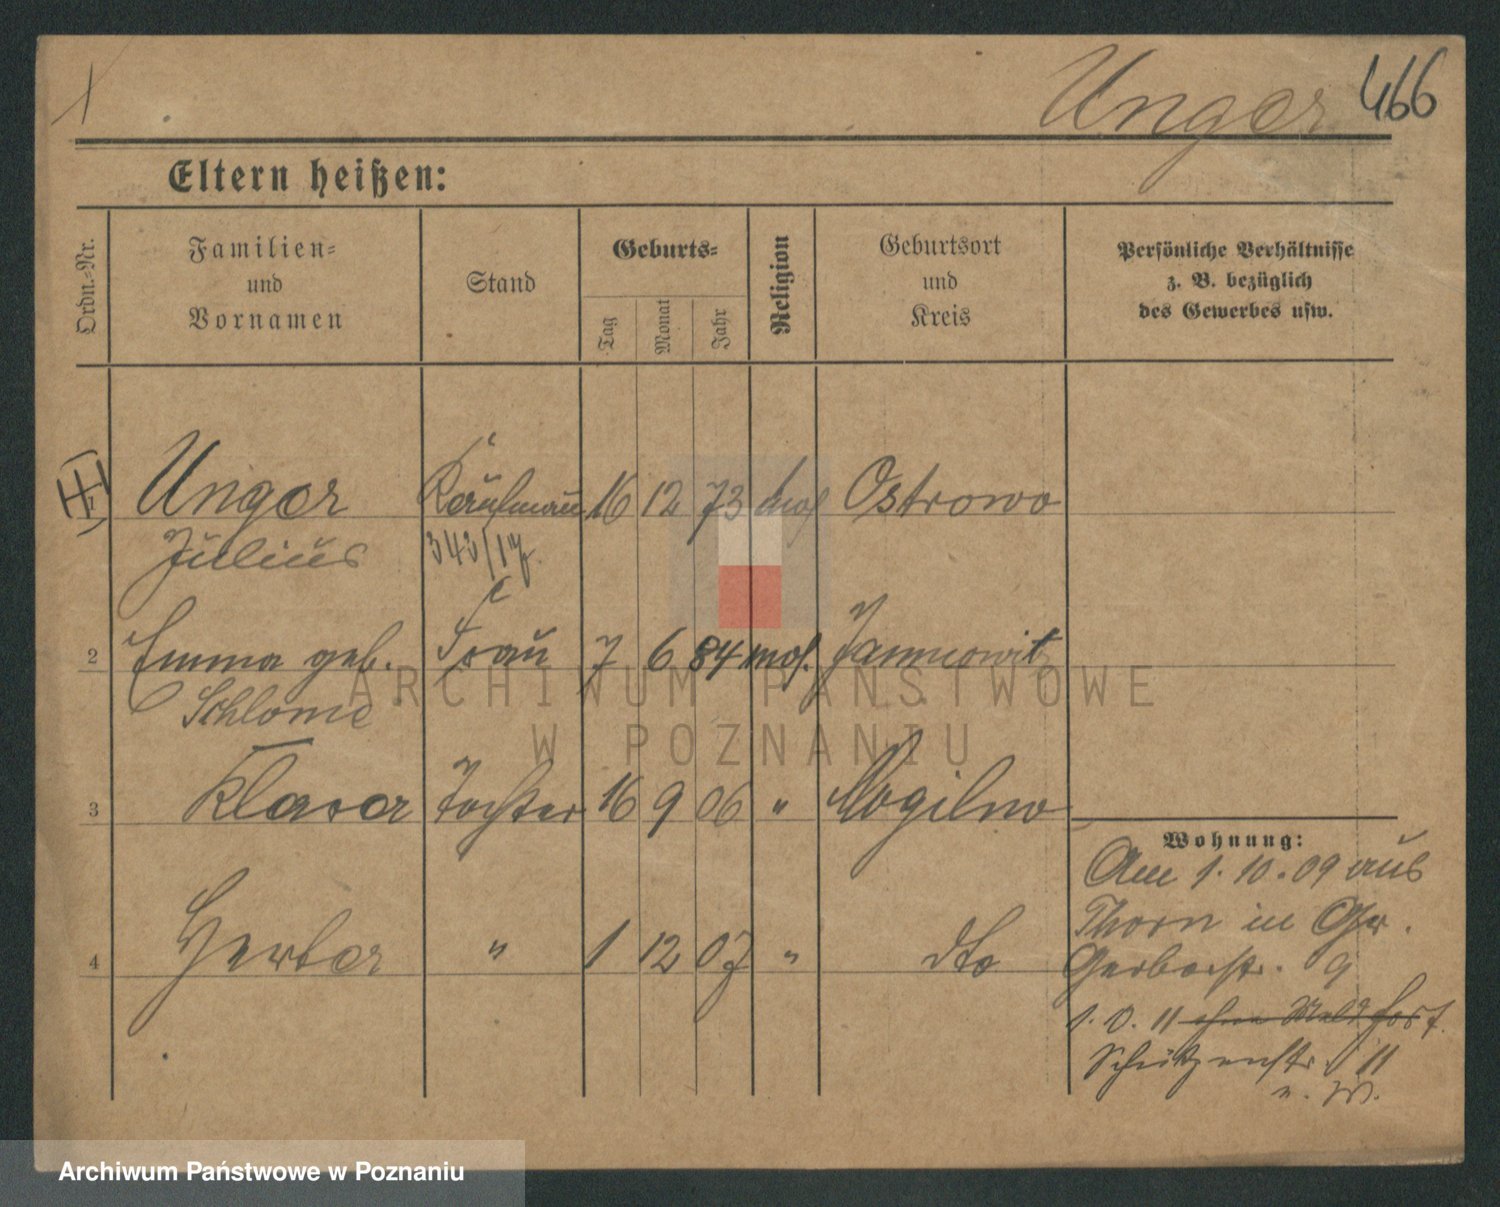 Unger 466
Eltern heißen:
Ordn.-Nr.
Familien-
und
Vornamen
Stand
Geburts-
Tag
Monat
Jahr
Religion
Geburtsort
und
Kreis
Persönliche Verhältnisse
z. B. bezüglich
des Gewerbes usw.
1 Unger Kaufmann 16 12 73 mos Ostrowo
Julius 343/17.
2 Emma geb. Frau 7 6 84 mos. Jannowitz
Schlome
3 Klara Tochter 16 9 06 " Mogilno
Wohnung:
Am 1. 10. 09 aus
Thorn in Gr.
4 Herta " 1 12 07 " dto
Gerberstr. 9
1. 11 ohne Meld fort.
Schützenstr. 11
ARCHIWUM PAŃSTWOWE
W POZNANIU
Archiwum Państwowe w Poznaniu